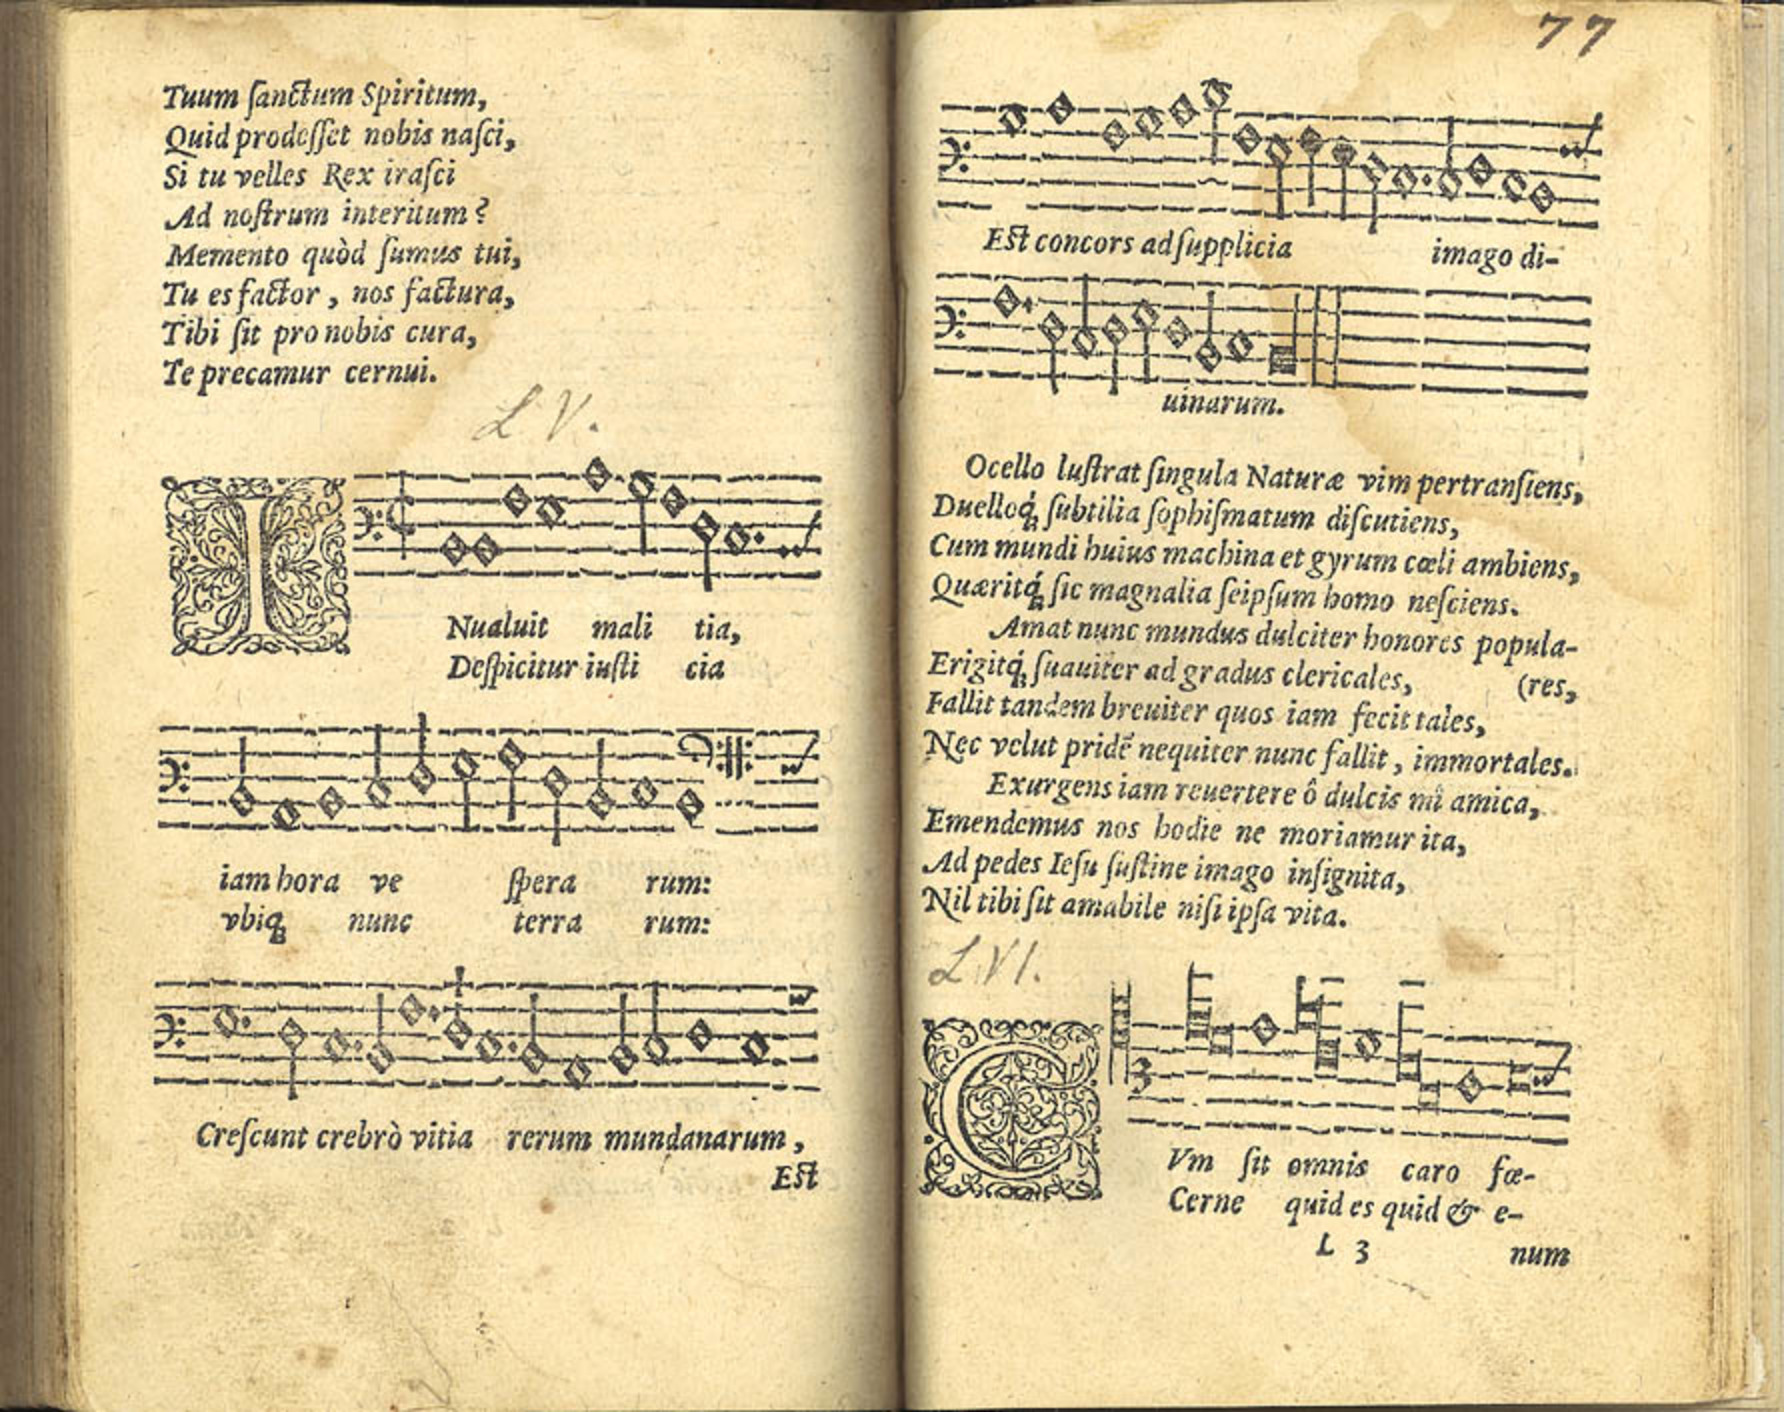 Tuum ſanctum Spiritum,
Quid prodeſſet nobis naſci,
Si tu velles Rex iraſci
Ad noſtrum interitum?
Memento quòd ſumus tui,
Tu es factor, nos factura,
Tibi ſit pro nobis cura,
Te precamur cernui.
LV.
I
Nualuit mali tia,
Deſpicitur iuſti cia
iam hora ve ſpera rum:
vbiq; nunc terra rum:
Creſcunt crebrò vitia rerum mundanarum,
Eſt
77
Eſt concors ad ſupplicia imago di-
uinarum.
Ocello luſtrat ſingula Naturæ vim pertranſiens,
Duelloq́; ſubtilia ſophiſmatum diſcutiens,
Cum mundi huius machina et gyrum cœli ambiens,
Quæritq́; ſic magnalia ſeipſum homo neſciens.
Amat nunc mundus dulciter honores popula-
Erigitq́; ſuauiter ad gradus clericales, (res,
Fallit tandem breuiter quos iam fecit tales,
Nec velut pridē nequiter nunc fallit, immortales.
Exurgens iam reuertere ô dulcis mî amica,
Emendemus nos hodie ne moriamur ita,
Ad pedes Ieſu ſuſtine imago inſignita,
Nil tibi ſit amabile niſi ipſa vita.
LVI.
C
Vm ſit omnis caro fœ-
Cerne quid es quid & e-
L 3 num